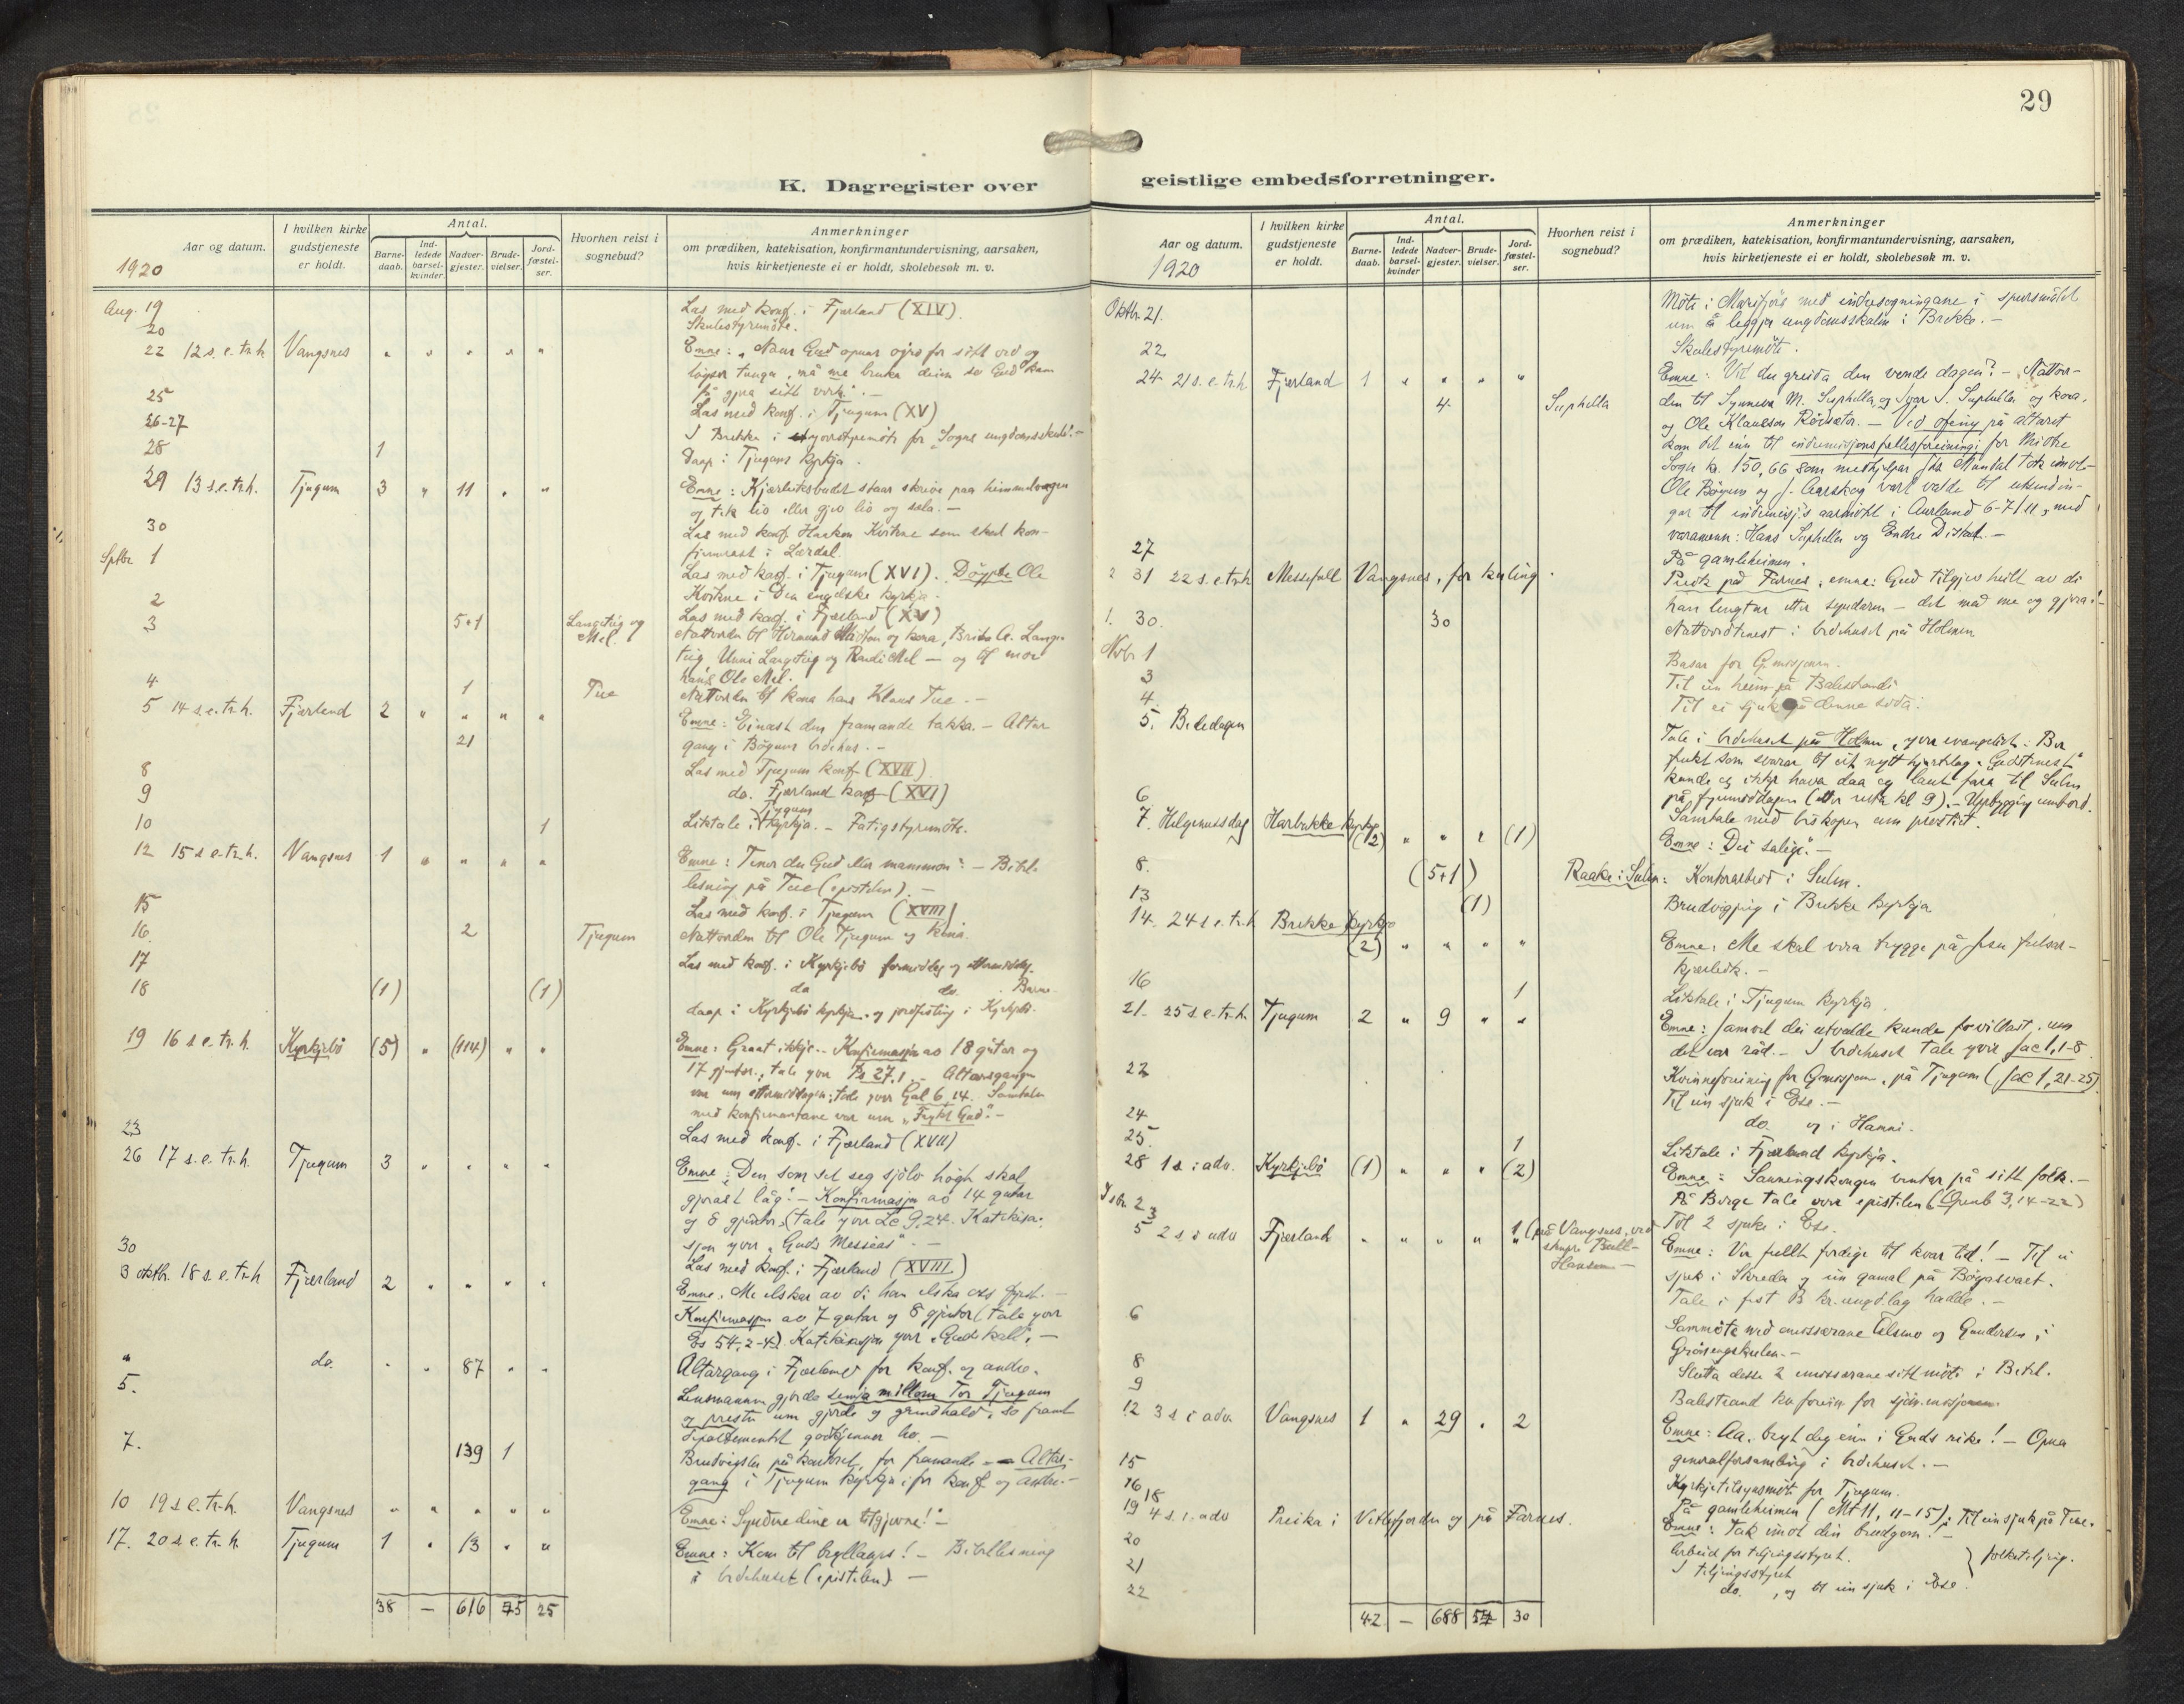 29
K. Dagregister over geistlige embedsforretninger.
Aar og datum.
I hvilken kirke gudstjeneste er holdt.
Antal.
Barne-daab.
Ind-ledede barsel-kvinder.
Nadver-gjester.
Brude-vielser.
Jord-fæstel-ser.
Hvorhen reist i sognebud?
Anmerkninger
om prædiken, katekisation, konfirmantundervisning, aarsaken,
hvis kirketjeneste ei er holdt, skolebesøk m. v.
1920
Aug. 19 Las med konf. i Fjærland (XIV).
20 Skulestyremöte.
22 12 s. e. tr. h. Vangsnes " " " " " Emne: "Naar Gud opnar öyro for sitt ord og
löyser tunga, må me bruka deim so Gud kan
få gjera sitt verk". -
25 Las med konf. i Tjugum (XV)
26-27 I Brekke i styremöte for "Sogns ungdomsskule". -
28 1 Daap i Tjugum kyrkja.
29 13 s. e. tr. h. Tjugum 3 " 11 " " Emne: Kjærleiksbodet staar skrive paa himmelvegen
og tek liv eller gjev liv og sæla. -
30 Las med konf. Haakon Kvikne som skal kon-
firmerast i Lærdal.
Sptbr 1 Las med konf. i Tjugum (XVI). Döypte Ole
Kvikne i den engelske kyrkja.
2 Las med konf. i Fjærland (XV)
3 5+1 Langeteig og Mel. Nattverden til og kona, Brita A. Lange-
teig, Unni Langeteig og Randi Mel - og til mor
hans Ole Mel.
4 1 Tue Nattverden til kona hans Klaus Tue. -
5 14 s. e. tr. h. Fjærland 2 " " " " Emne: Einast den framande takka. - Altar
21 gang i Böyums bedehus. -
8 Las med Tjugum konf. (XVII)
9 do. Fjærland konf. (XVI)
10 1 Liktale i Tjugum kyrkja. - Fatigstyremöte.
12 15 s. e. tr. h. Vangsnes 1 " " " " Emne: Tener du Gud eller mammon? - Bibel-
lesning på Tue (epistelen). -
15 Las med konf. i Tjugum (XVIII)
16. 2 Tjugum Nattverden til Ole Tjugum og kona.
17 Las med konf. i Kyrkjebö formiddag og ettermiddag.
18 (1) (1) do do. Barne-
daap i Kyrkjebö kyrkja og jordfesting i Kyrkjebö.
19 16 s. e. tr. h. Kyrkjebö (5) " (114) " " Emne: Graat ikkje. - Konfirmasjon av 18 gutar og
17 gjentor, tale yver Ps 27,1. - Altargang
um ettermiddagen; tale yver Gal 6,14. Samtalen
med konfirmantane var um "Frykt Gud". -
23 Las med konf. i Fjærland (XVII)
26 17 s. e. tr. h. Tjugum 3 " " " " Emne: Den som set seg sjölv högt skal
gjerast låg". - Konfirmasjon av 14 gutar
og 8 gjentor, (tale yver Lc 9,24. Katekisa-
sjon yver "Guds Messias". -
30 Las med konf. i Fjærland (XVIII)
3 oktbr. 18 s. e. tr. h Fjærland 2 " " " " Emne. Me elskar av di han elska oss fyrst. -
Konfirmasjon av 7 gutar og 8 gjentor (tale yver
Es 54,2-4). Katekisasjon yver "Guds kall". -
" do. " " 87 " " Altargang i Fjærland for konf. og andre.
5. Lensmannen gjorde semja millom Tor Tjugum
og presten um gjerde og grindhald, so framt
departementet godkjenner ho. -
7. 139 1 Brudvigsla på kontoret, for framande - Altar-
gang i Tjugum kyrkja, for konf. og andre. -
10 19 s. e. tr. h. Vangsnes " " " " " Emne: Syndene dine er tilgjevne! -
17. 20 s. e. tr. h. Tjugum 1 " 13 " " Emne: Kom til bryllaups! - Bibellesning
i bedehuset (epistelen) -
38 - 616 25
Aar og datum.
I hvilken kirke gudstjeneste er holdt.
Antal.
Barne-daab.
Ind-ledede barsel-kvinder
Nadver-gjester.
Brude-vielser.
Jord-fæstel-ser.
Hvorhen reist i sognebud?
Anmerkninger
om prædiken, katekisation, konfirmantundervisning, aarsaken,
hvis kirketjeneste ei er holdt, skolebesøk m. v.
1920
Oktbr. 21. Möte i med indresogningane i spursmålet
um å leggja ungdomsskulen i Brekke. -
22 Skulestyremöte.
24 21 s. e. tr. h Fjærland 1 " " " " Emne: Vil du greida den vonde dagen? - Nattver-
4 Supphella den til Synneva M. Supphella, og Ivar S. Supphella og kona,
og Ole Klausson Rödseter. - Ved ofring på altaret
kom det inn til indremisjonsfellesforeiningi for Midtre
Sogn kr. 150,66 som medhjelpar Mundal tok imot -
Ole Böyum og J. Aarskog vart valde til utsendin-
gar til indremisj's aarsmöte i Aurland 6-7/11, med
varamenn: Hans Supphella og Endre Distad. -
27 På gamleheimen.
31 22 s. e. tr. h Messefall Vangsnes, for kuling. Preik på Farnes, emne: Gud tilgjev heilt av di
han lengtar etter syndaren - det må me og gjera! -
30. 30 Nattverdtenest i bedehuset på Holmen
Nvbr 1 Basar for
3 Til ein heim på Balestrand.
4. Til ei sjuk på denne sida.
5. Bededagen Tale i bedehuset på Holmen, yver evangeliet: Ber
frukt som svarar til eit nytt hjartelag. Gudstenest
kunde eg ikkje hava daa eg laut fara til Sulen
6 på fyremiddagen (etter ruta kl 9). - Uppbygging umbord.
Samtale med biskopen um prestket.
7. Helgemessdag Harbakke kyrkje (12) " " " (1) Emne: "Dei salige". -
8. (5+1) Raake i Sulen: Kontorarbeid i Sulen.
13 (1) Brudvigjing i Brekke kyrkja
14. 24 s. e. tr. h Brekke kyrkje (2) " " " " Emne: Me skal vera trygge på Jesu frelsar-
kjærleik. -
16 1 Liktale i Tjugum kyrkja.
21. 25 s. e. tr. h Tjugum 2 " 9 " " Emne: Jamvel dei utvalde kunde forvillast, um
det var råd. - I bedehuset tale yver Jac 1,1-8.
22 Kvinneforeining for , på Tjugum (Jac 1,21-25)
Til ein sjuk i Ese. -
24 do. og i Hamri.
25. 1 Liktale i Fjærland kyrkja.
28 1 s. i adv. Kyrkjebö (1) " " " (2) Emne: Sanningskongen ventar på sitt folk. -
På Borge tale yver epistelen (Openb 3,14-22)
Dsbr. 2 3 Til 2 sjuke i Ese.
5 2 s. i adv Fjærland " " " " 1 (på Vangsnes, ved Hansen - Emne: Ver fullt ferdige til kvar tid! - Til ei
sjuk i Skreda og ein gamal på Böyasvæet.
Tale i fest B kr. ungd.lag hadde. -
6 Sammöte med emissærane Alsmo og Gundersen i
Gröningskulen. -
8 Slutta desse 2 emissærane sitt möte i Betel.
9 Balestrand for sjömisjonen.
12 3 s. i adv. Vangsnes 1 " 29 " 2 Emne: Aa, bryt deg inn i Guds rike! - Open
generalforsamling i bedehuset. -
15 Kyrkjetilsynsmöte for Tjugum.
16 18 På gamleheimen (Mt 11, 11-15); Til ein sjuk på Tue.
19 4 s. i. adv Preika i Vetlefjorden og på Farnes. Emne: Tak imot din brudgom! -
20 Arbeid for teljingsstyret.
21 I teljingsstyret } folketeljing.
22 do. , og til ein sjuk i Ese.
42 - 688 30